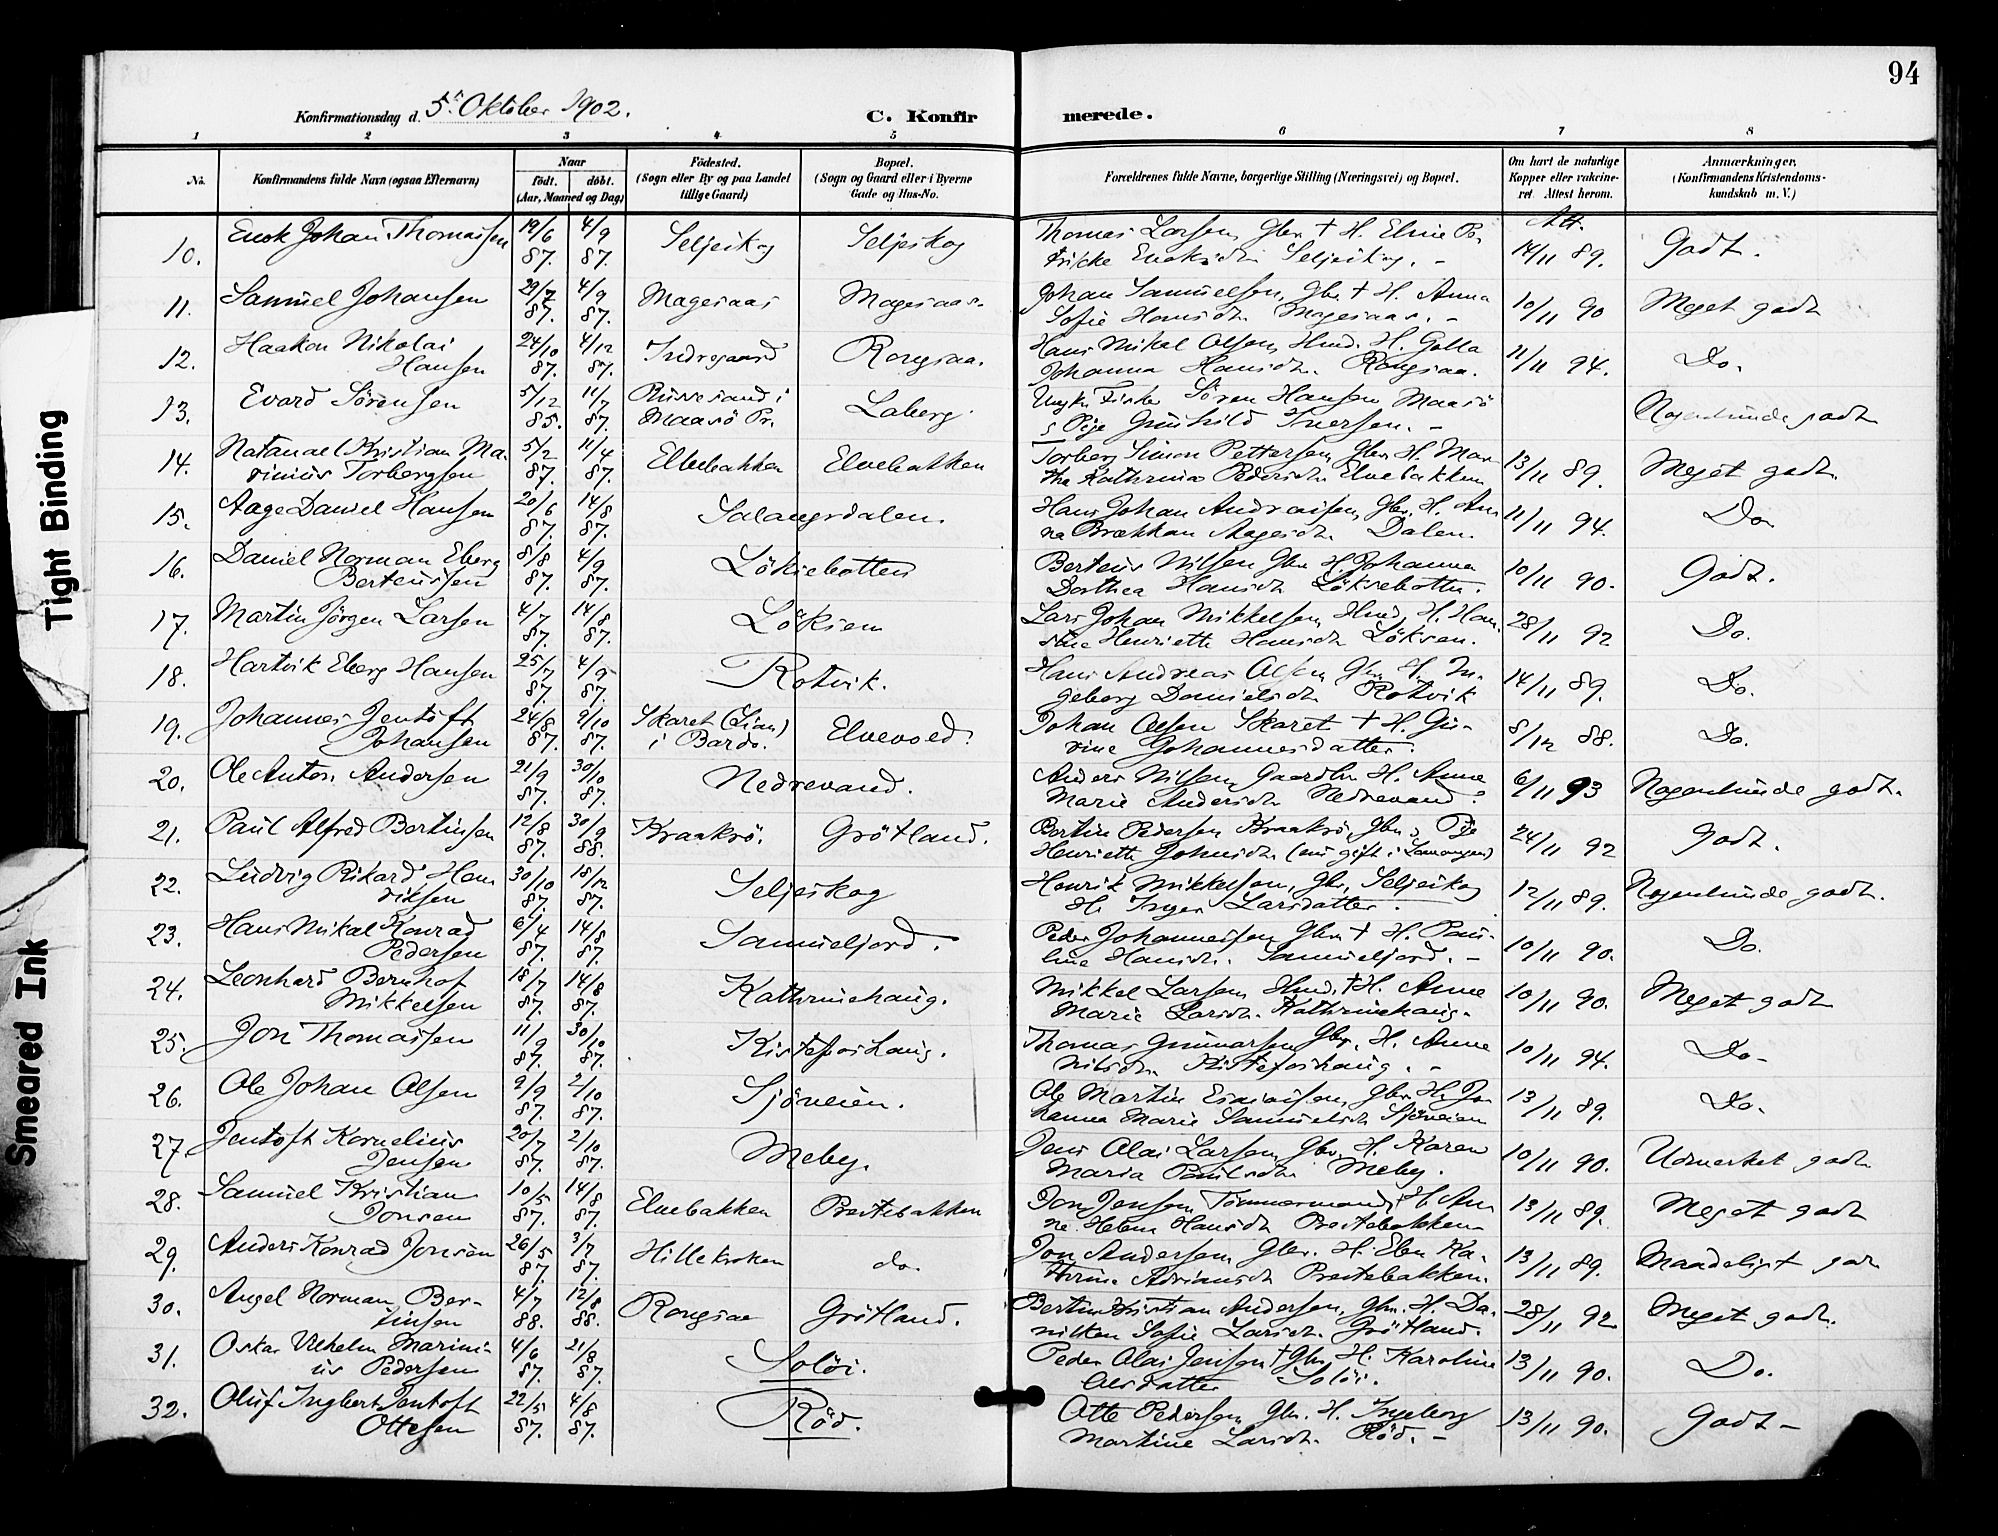 94
Konfirmationsdag d. 5te Oktober 1902.
C. Konfirmerede.
1 2 3 4 5 6 7 8
No.
Konfirmandens fulde Navn (ogsaa Efternavn)
Naar
født. døbt.
(Aar, Maaned og Dag)
Fødested.
(Sogn eller By og paa Landet
tillige Gaard)
Bopæl.
(Sogn og Gaard eller i Byerne
Gade og Hus-No.
Forældrenes fulde Navne, borgerlige Stilling (Næringsvei) og Bopæl.
Om havt de naturlige
Kopper eller vakcine-
ret. Attest herom.
Anmærkninger.
(Konfirmandens Kristendoms-
kundskab m. V.)
Att.
10. Enok Johan Thomassen 19/6 87. 4/9 87. Seljeskog Seljeskog Thomas Larsen, Gbr. † H. Eline Pe-
trikke Enoksdtr. Seljeskog. - 14/11 89. Godt.
11. Samuel Johansen 29/7 87. 4/9 87. Magesaas Magesaas. Johan Samuelsen, Gbr. † H. Anna
Sofie Hansdtr. Magesaas. - 10/11 90 Meget godt
12. Haakon Nikolai
Hansen 24/10 87. 4/12 87. Indregaard Rongsaa. Hans Mikal Olsen, Hmd. H. Golla
Johanna Hansdtr. Rongsaa. 11/11 94. Do.
13. Evard Sørensen 5/12 85. 11/7 87. Russesund i
Maasø Pr. Laberg. Ungkr. Fisker Søren Hansen Maasø
s Pige Gunhild Iversen. - Nogenlunde godt
14. Natanael Kristian Ma-
rinius Torbergsen 5/2 87. 11/4 87. Elvebakken Elvebakken Torberg Simon Pettersen, Gbr. H. Mar-
tha Kathrina Pedersdtr. Elvebakken 13/11 89. Meget godt.
15. Aage Daniel Hansen 20/6 87. 14/8 87. Salangsdalen. Hans Johan Andreassen, Gbr. H. An-
na Brækkan Aagesdtr. Dalen. 11/11 94. Do.
16. Daniel Norman Eberg
Berteussen 8/8 87. 4/9 87. Løksebotten Berteus Nilsen Gbr. H. Johanna
Dorthea Hansdtr. Løksebotten. 10/11 90. Godt.
17. Martin Jørgen Larsen 4/7 87. 14/8 87. Løksen Lars Johan Mikkelsen, Hmd. H. Han-
sine Henriette Hansdtr. Løksen. 28/11 92 Do.
18. Hartvik Eberg Hansen 25/7 87. 4/9 87. Rotvik. Hans Andreas Olsen, Gbr. H. In-
geborg Danielsdtr. Rotvik 14/11 89. Do.
19. Johannes Jentoft
Johansen 24/8 87. 9/10 87. Skaret (Lian)
i Bardo. Elvevold. Johan Olsen Skaret † H. Gu-
rine Johannesdatter. 8/12 88. Do.
20. Ole Anton Andersen 21/9 87. 30/10 87. Nedrevand. Anders Nilsen, Gaardbr. H. Anne
Marie Andersdtr. Nedrevand. 6/11 93 Nogenlunde godt.
21. Paul Alfred Bertinsen 12/8 87. 30/9 88. Kraakrø. Grøtland. Bertin Pedersen Kraakrø, Gbr. s Pige
Henriette Johnsdtr. (nu gift i ) 24/11 92 Godt.
22. Ludvig Rikard Hen-
riksen 30/10 87. 18/12 87. Seljeskog Henrik Mikkelsen, Gbr. Seljeskog
H. Inger Larsdatter. 12/11 89. Nogenlunde godt.
23. Hans Mikal Konrad
Pedersen 6/4 87. 14/8 87. Samueljord. Peder Johannessen, Gbr. † H. Pau-
line Hansdtr. Samueljord. - 10/11 90. Do.
24. Leonhard Bernhof
Mikkelsen 18/7 87. 14/8 87. Kathrinehaug. Mikkel Larsen, Hmd. † H. Anne
Marie Larsdtr. Kathrinehaug. 10/11 90. Meget godt
25. Jon Thomassen 11/9 87. 30/10 87. Kistefoshaug. Thomas Gunnarsen Gbr. H. Anne
Nilsdtr. Kistefoshaug. - 10/11 94. Do.
26. Ole Johan Olsen 9/9 87. 2/10 87. Sjøveien. Ole Martin Esaiassen, Gbr. H. Jo-
hanna Marie Samuelsdtr. Sjøveien 13/11 89. Do.
27. Jentoft Kornelius
Jensen 20/7 87. 2/10 87. Meby. Jens Olai Larsen, Gbr. H. Karen
Maria Paulsdtr. Meby. 10/11 90. Udmerket godt
28. Samuel Kristian
Jonsen 10/5 87. 14/8 87. Elvebakken Prestebakken Jon Jensen Tømmermand, † H. An-
ne Helene Hansdtr. Prestebakken 13/11 89. Meget godt
29. Anders Konrad Jonsen 26/5 87. 3/7 87. Hillekroken do. Jon Andersen, Gbr. H. Elen Ka-
thrine Adriansdtr. Prestebakken. 13/11 89. Maadeligt godt
30. Angel Norman Ber-
tinsen 4/7 88. 12/8 88. Rongsaa Grøtland. Bertin Kristian Andersen, Gbr. H. Da-
nikken Sofie Larsdtr. Grøtland. 28/11 92. Meget godt.
31. Oskar Vilhelm Marini-
us Pedersen 4/6 87. 21/8 87. Soløi. Peder Olai Jensen † Gbr. H. Karoline
Olesdatter Soløi. 13/11 90. Do.
32. Oluf Ingbert Jentoft
Ottesen 22/5 87. 4/8 87. Rød. Otte Pedersen, Gbr. H. Ingeborg
Martine Larsdtr. Rød. - 13/11 90. Godt -
Tight Binding
Smeared Ink